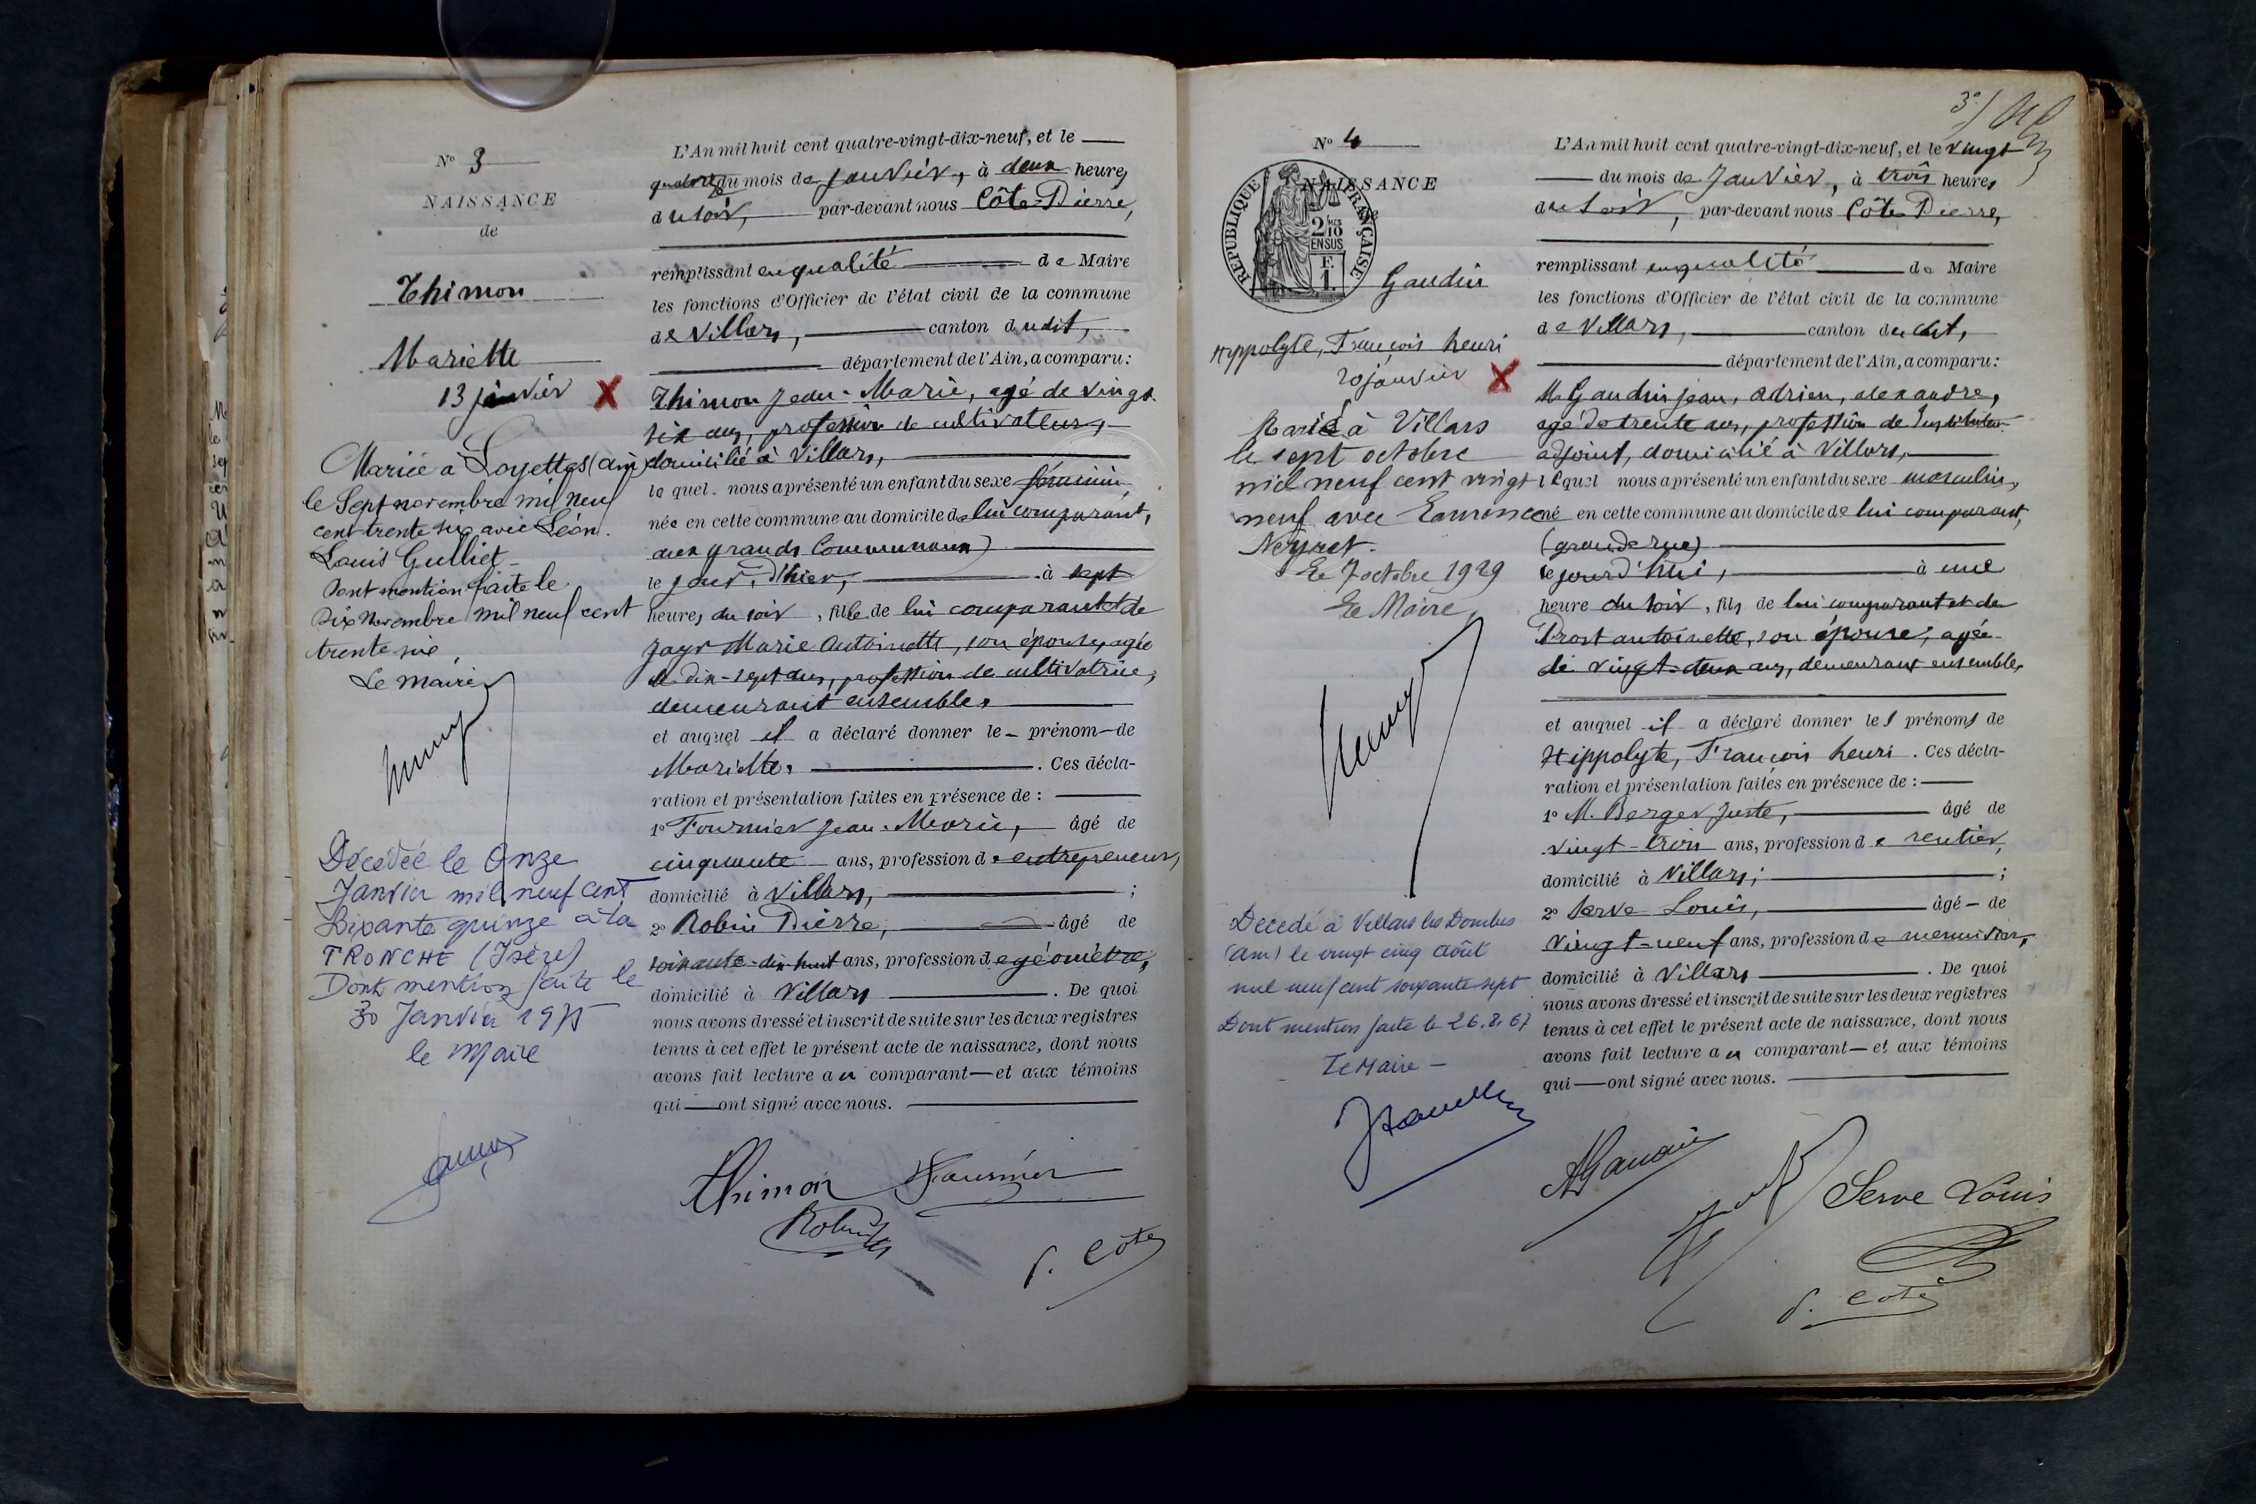 N° 3
NAISSANCE
de
Thimon
Mariette
13 janvier X
Mariée à Loyettes (Ain)
le Sept novembre mil neuf
cent trente six avec Léon.
Louis Gulliet
Dont mention faite le
Dix Novembre mil neuf cent
trente six,
Le Maire
Décédée le Onze
Janvier mil neuf cent
Soixante quinze à la
TRONCHE (Isère)
Dont mention faite le
30 Janvier 1975
le Maire
L'An mil huit cent quatre-vingt-dix-neuf, et le
quatorze du mois de Janvier, à deux heures
du soir, par-devant nous Côte Pierre,
remplissant en qualité de Maire
les fonctions d'Officier de l'état civil de la commune
de Villars, canton dudit,
département de l'Ain, a comparu:
Thimon Jean-Marie, agé de vingt
six ans, profession de cultivateur,
domicilié à Villars,
le quel nous a présenté un enfant du sexe féminin,
née en cette commune au domicile de lui comparant,
aux grands Communaux)
le jour d'hier, à sept
heures du soir, fille de lui comparant et de
Jayr Marie Antoinette, son épouse, agée
de dix-sept ans, profession de cultivatrice,
demeurant ensemble,
et auquel il a déclaré donner le prénom de
Mariette, . Ces décla-
ration et présentation faites en présence de :
1° Fournier Jean-Marie, âgé de
cinquante ans, profession d'entrepreneur,
domicilié à Villars, ;
2° Robin Pierre, âgé de
soixante-dix huit ans, profession de géomètre,
domicilié à Villars . De quoi
nous avons dressé et inscrit de suite sur les deux registres
tenus à cet effet le présent acte de naissance, dont nous
avons fait lecture au comparant et aux témoins
qui ont signé avec nous.
Thimon Fournier
Robin
P. Côte
3e
N° 4
NAISSANCE
REPUBLIQUE FRANÇAISE
2/10 EN SUS
F. 1.
Gaudin
Hippolyte, François henri
20 janvier X
Marié à Villars
le sept octobre
mil neuf cent vingt
neuf avec
Neyret.
Le 7 octobre 1929
Le Maire,
Decedé à Villars les Dombes
(Ain) le vingt cinq août
mil neuf cent soixante sept
Dont mention faite le 26.8.67
Le Maire -
L'An mil huit cent quatre-vingt-dix-neuf, et le vingt
du mois de Janvier, à trois heures
du soir, par-devant nous Côte Pierre,
remplissant en qualité de Maire
les fonctions d'Officier de l'état civil de la commune
de Villars, canton dudit,
département de l'Ain, a comparu:
M. Gaudin jean, adrien, alexandre,
agé de trente ans, profession de Instituteur
adjoint, domicilié à Villars,
lequel nous a présenté un enfant du sexe masculin,
né en cette commune au domicile de lui comparant,
(grande rue)
le jourd'hui, à une
heure du soir, fils de lui comparant et de
Prost antoinette, son épouse, agée
de vingt-deux ans, demeurant ensemble,
et auquel il a déclaré donner les prénoms de
Hippolyte, François henri . Ces décla-
ration et présentation faites en présence de :
1° M. Berger Juste, âgé de
vingt-trois ans, profession de rentier,
domicilié à Villars, ;
2° Serve Louis, âgé de
vingt-neuf ans, profession de menuisier,
domicilié à Villars . De quoi
nous avons dressé et inscrit de suite sur les deux registres
tenus à cet effet le présent acte de naissance, dont nous
avons fait lecture au comparant et aux témoins
qui ont signé avec nous.
Serve Louis
P. Côte